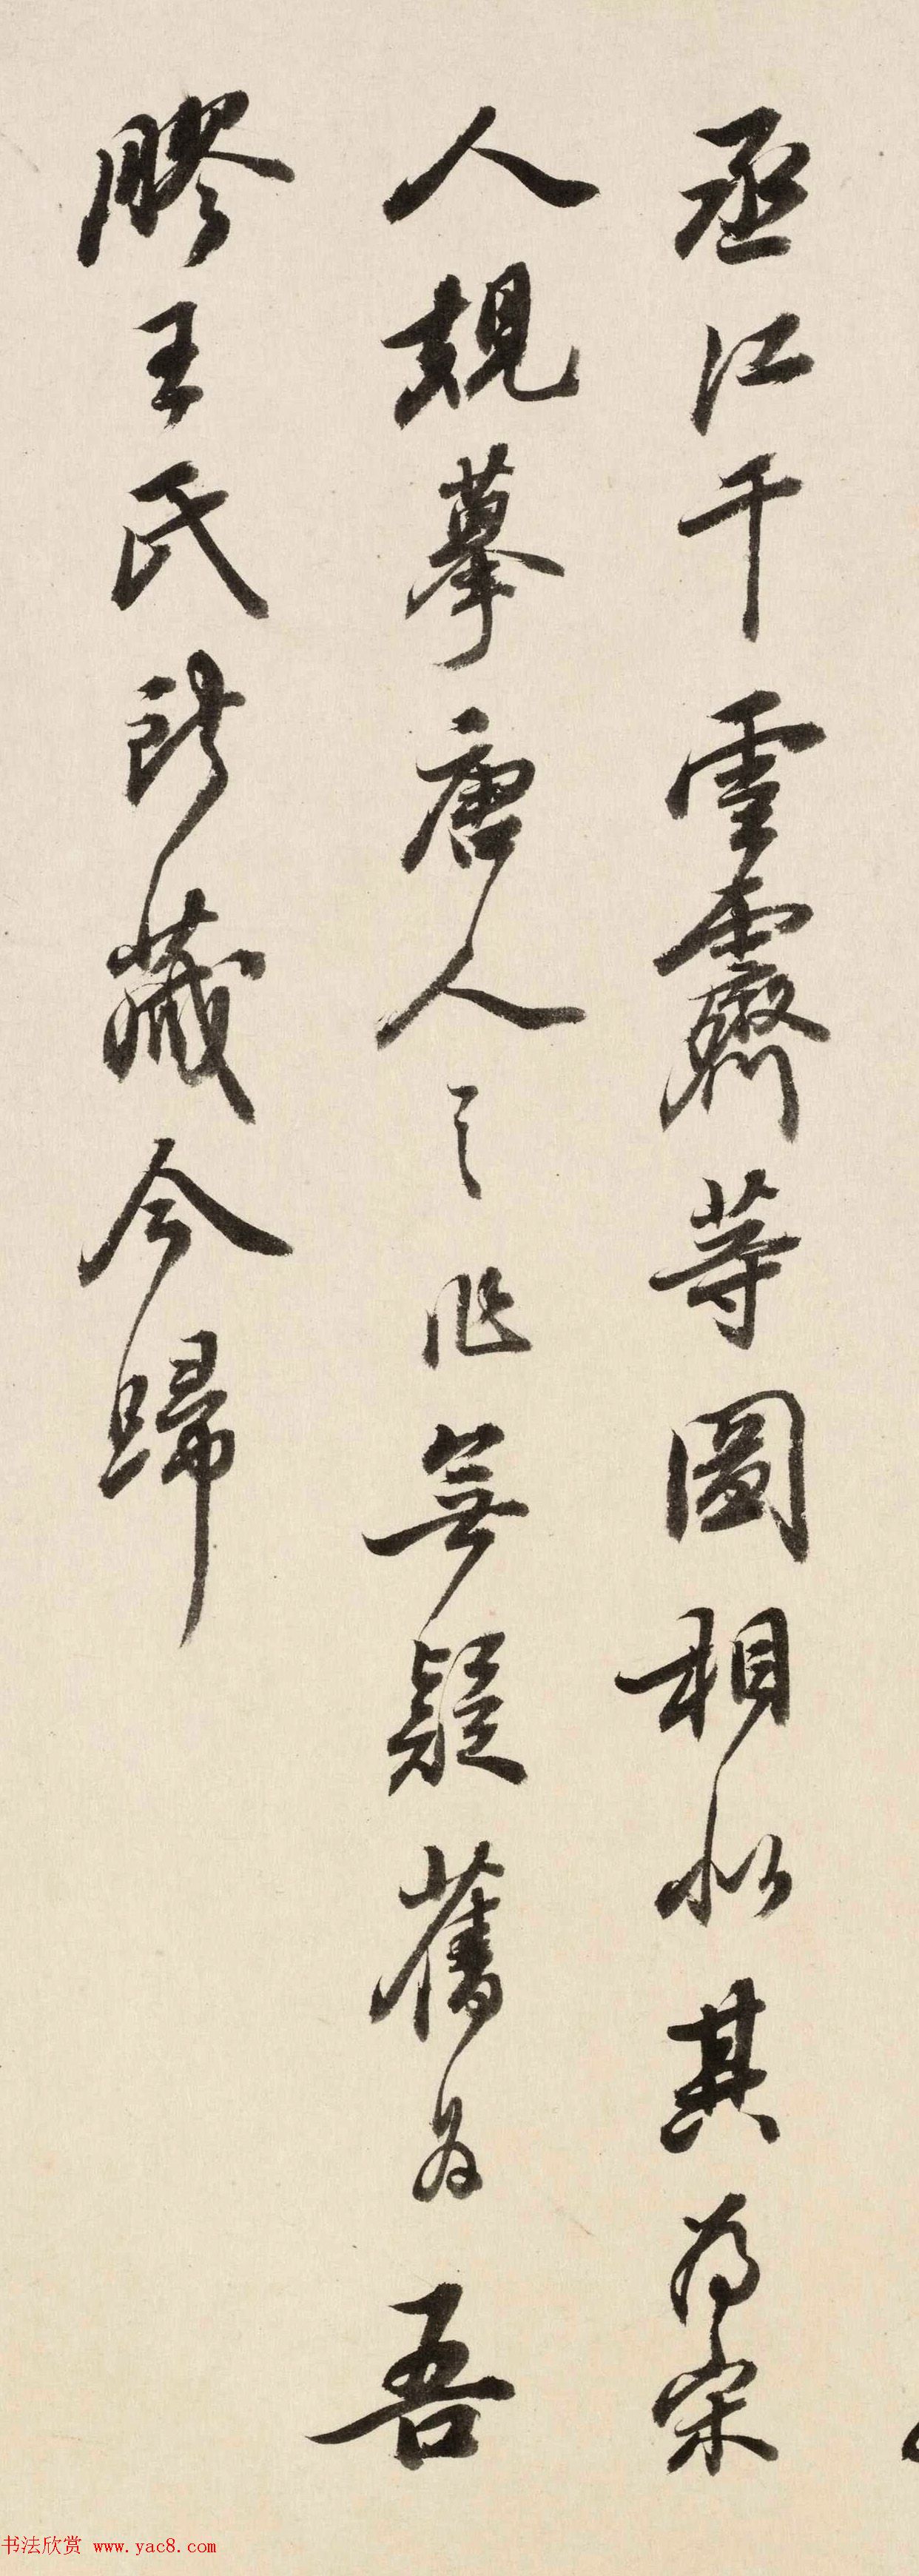 丞江干雪霽等圖相似其為宋
人規摹唐人之作無疑舊為吾
膠王氏所藏今歸
书法欣赏 www.yac8.com